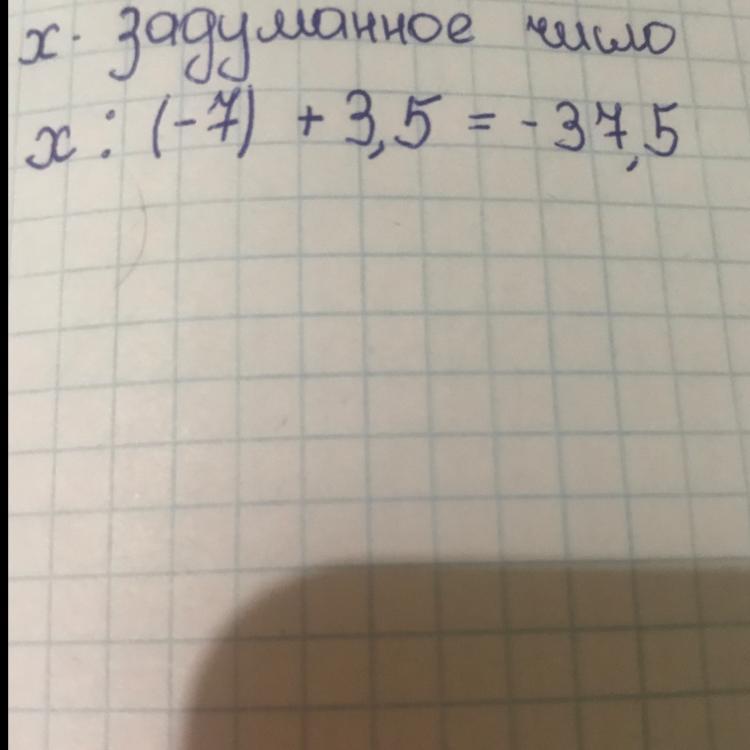 x - задуманное число
x : (-7) + 3,5 = -37,5